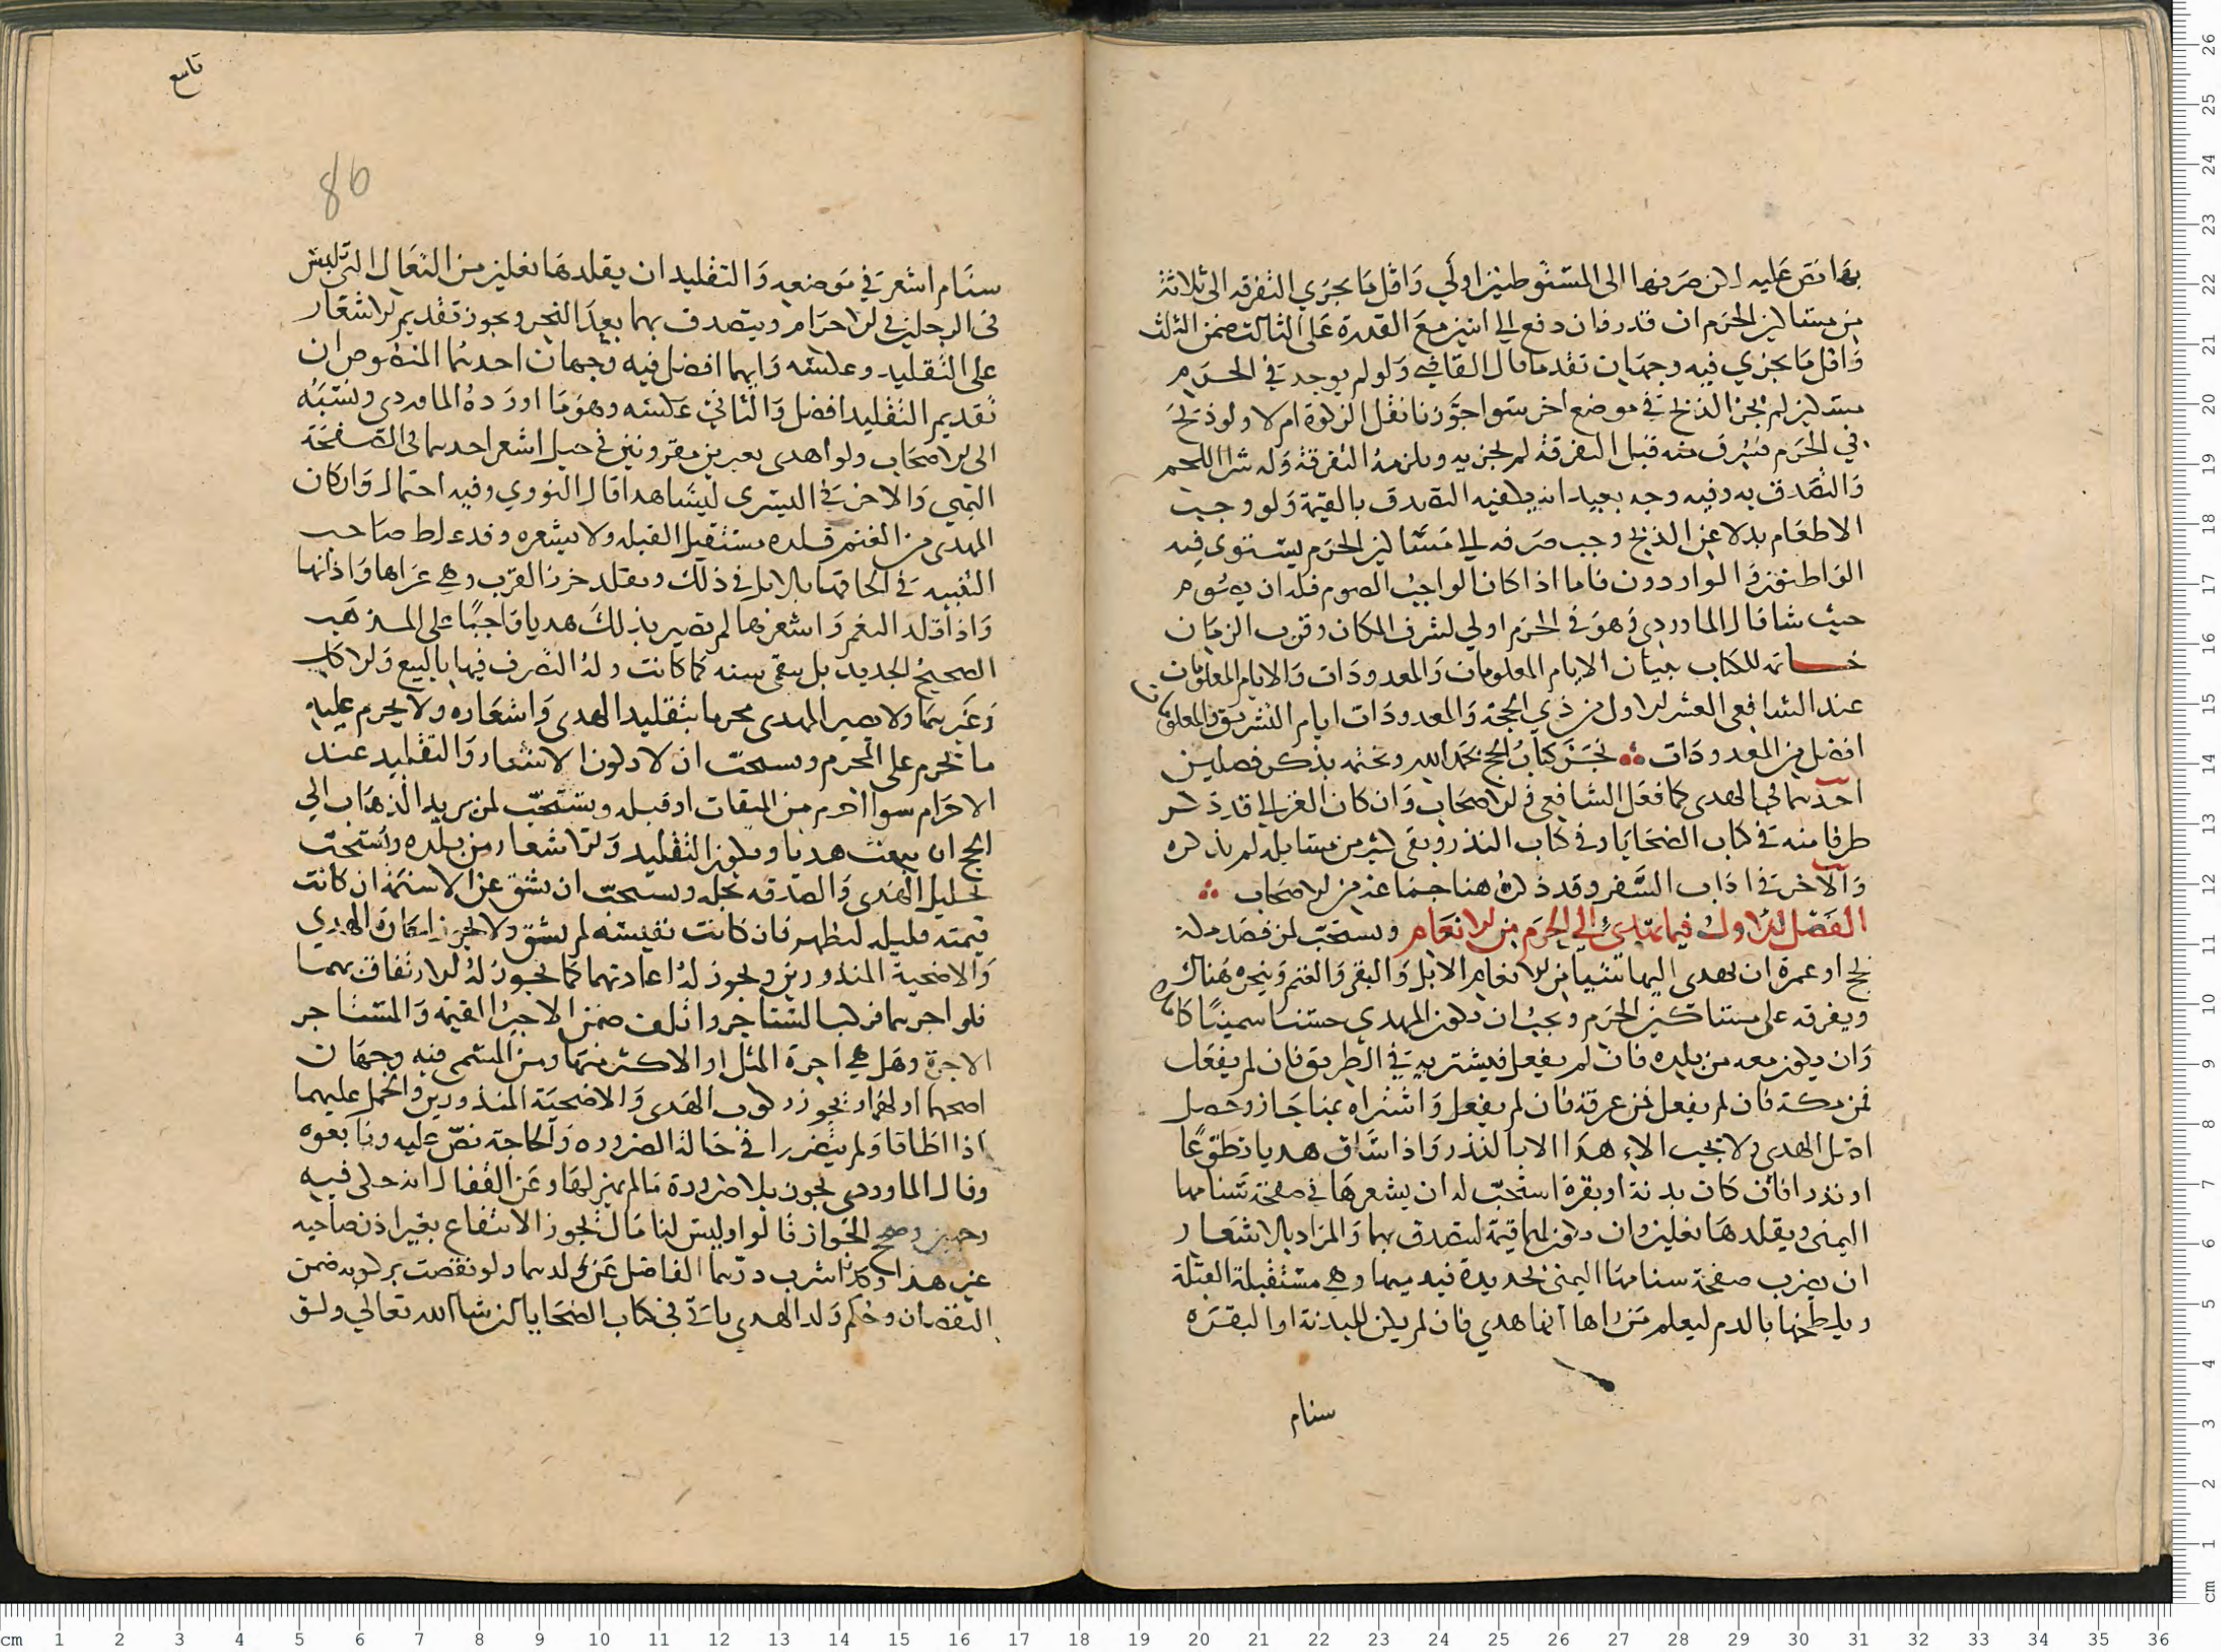 بها نص عليه لكن صرفها الى المستوطنين اولى واقل ما يجزي التفرقه الى ثلاثة
من مساكين الحرم ان قدر فان دفع الى اثنين مع القدرة على الثالث ضمن الثالث
واقل ما يجزي فيه وجهان تقدما قال القاضي ولو لم يوجد في الحرم
مساكين لم يجز الذبح في موضع اخر سوا جوزنا نقل الزكوة ام لا ولو ذبح
في الحرم فسرق منه قبل التفرقة لم يجزيه ويلزمه التفرقة وله شرا اللحم
والتصدق به وفيه وجه بعيد انه يكفيه التصدق بالقيمة ولو وجب
الاطعام بدلا عن الذبح وجب صرفه الى مساكين الحرم يستوي فيه
القاطنون والواردون فاما اذا كان الواجب الصوم فله ان يصوم
حيث شا قال الماوردي وهو في الحرم اولى لشرف المكان وقرب الزمان
خاتمة للكتاب بيان الايام المعلومات والمعدودات والايام المعلومات
عند الشافعي العشر الاول من ذي الحجة والمعدودات ايام التشريق والمعلومات
افضل من المعدودات نجز كتاب الحج بحمد الله ونختمه بذكر فصلين
احدهما في الهدى كما فعل الشافعي والاصحاب وان كان الغزالي قد ذكر
طرفا منه في كتاب الضحايا وفي كتاب النذر وبقى كثير من مسايله لم يذكره
والاخر في اداب السفر وقد ذكره هنا جماعة من الاصحاب
الفصل الاول فيما يهدى الى الحرم من الانعام ويستحب لمن قصد مكة
لحج او عمرة ان يهدى اليها شيا من الانعام الابل والبقر والغنم وينحره هناك
ويفرقه على مساكين الحرم ويجب ان يكون المهدى حسنا سمينا كاملا
وان يكون معه من بلده فان لم يفعل فيشتريه في الطريق فان لم يفعل
فمن مكة فان لم يفعل فمن عرفة فان لم يفعل واشتراه بمنا جاز وحصل
اصل الهدى ولا يجب الاهدا الا بالنذر واذا ساق هديا تطوعا
او نذرا فان كان بدنة او بقرة استحب له ان يشعرها في صفحة سنامها
اليمنى ويقلدها نعلين وان يكون لهما قيمة ليتصدق بهما والمراد بالاشعار
ان يضرب صفحة سنامها اليمنى بحديدة فيدميها وهي مستقبلة القبلة
ويلطخها بالدم ليعلم من راها انها هدي فان لم يكن للبدنة او البقره
سنام
تاسع
86
سنام اشعر في موضعه والتقليد ان يقلدها نعلين من النعال التي تلبس
في الرجلين في الاحرام ويتصدق بهما بعد النحر ويجوز تقديم الاشعار
على التقليد وعكسه وايهما افضل فيه وجهان احدهما المنصوص ان
تقديم التقليد افضل والثاني عكسه وهو ما اورده الماوردي ونسبه
الى الاصحاب ولو اهدى بعيرين مقرونين في حبل اشعر احدهما في الصفحة
اليمنى والاخر في اليسرى ليشاهدا قال النووي وفيه احتمال وان كان
المهدى من الغنم قلده مستقبل القبله ولا يشعره وقد غلط صاحب
التنبيه في الحاقها بالابل في ذلك ويقلد خرب القرب وهي عراها واذانها
واذا قلد النعم واشعرها لم تصير بذلك هديا واجبا على المذهب
الصحيح الجديد بل يبقى سنه كما كانت وله التصرف فيها بالبيع والاكل
وغيرهما ولا يصير المهدى محرما بتقليد الهدى واشعاره ولا يحرم عليه
ما يحرم على المحرم ويستحب ان لا يكون الاشعار والتقليد عند
الاحرام سوا احرم من الميقات او قبله ويستحب لمن يريد الذهاب الى
الحج ان يبعث هديا ويكون التقليد والاشعار من بلده ويستحب
تجليل الهدى والصدقه بجله ويستحب ان يشق عن الاسنمة ان كانت
قيمته قليله ليظهر فان كانت نفيسة لم يشق ولا يجوز اجارة الهدي
والاضحية المنذورين ويجوز له اعارتهما كما يجوز له الارتفاق بهما
فلو اجرهما فركب المستاجر واتلف ضمن الاجير القيمة والمستاجر
الاجرة وهل هي اجرة المثل او الاكثر منها ومن المسمى فيه وجهان
اصحهما اولهما ويجوز ركوب الهدى والاضحية المنذورين والحمل عليهما
اذا اطاقا ولم يتضررا في حالة الضروره والحاجة نص عليه وتابعوه
وقال الماوردى يجوز بلا ضرورة ما لم يهزلها وعن القفال انه حكى فيه
وجهين وصحح الجواز قالوا وليس لنا مال يجوز الانتفاع بغير اذن صاحبه
غير هذا وكذا شرب درهما الفاضل عن ولدهما ولو نقصت بركوبه ضمن
النقصان وحكم ولد الهدى ياتي في كتاب الضحايا ان شا الله تعالى ولو